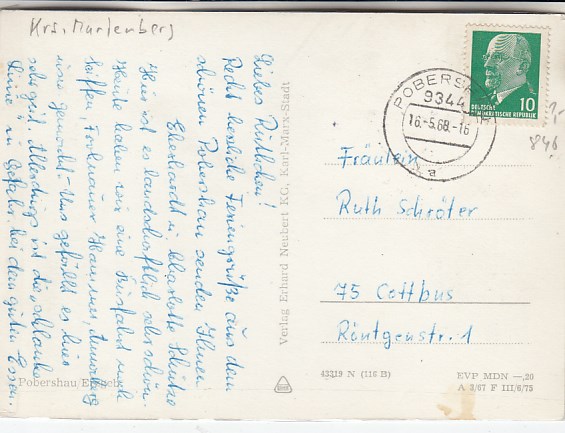 Krs. Marienberg
Liebes Ruthchen!
Recht herzliche Feriengrüße aus dem
schönen Pobershau senden Ihnen
Eberhardt u. Charlotte Schütze
Hier ist es landschaftlich sehr schön.
Heute haben wir eine Busfahrt nach
Seiffen, Frohnauer Hammer, Annaberg
usw. gemacht. Uns gefällt es hier
sehr gut. Allerdings ist die schlanke
Linie in Gefahr bei dem guten Essen.
Pobershau/Erzgeb.
Verlag Erhard Neubert KG, Karl-Marx-Stadt
POBERSHAU
9344
16.-5.68.-16
a
DEUTSCHE
DEMOKRATISCHE REPUBLIK
10
846
Fräulein
Ruth Schröter
75 Cottbus
Röntgenstr. 1
43319 N (116 B)
EVP MDN —,20
A 3/67 F III/6/75